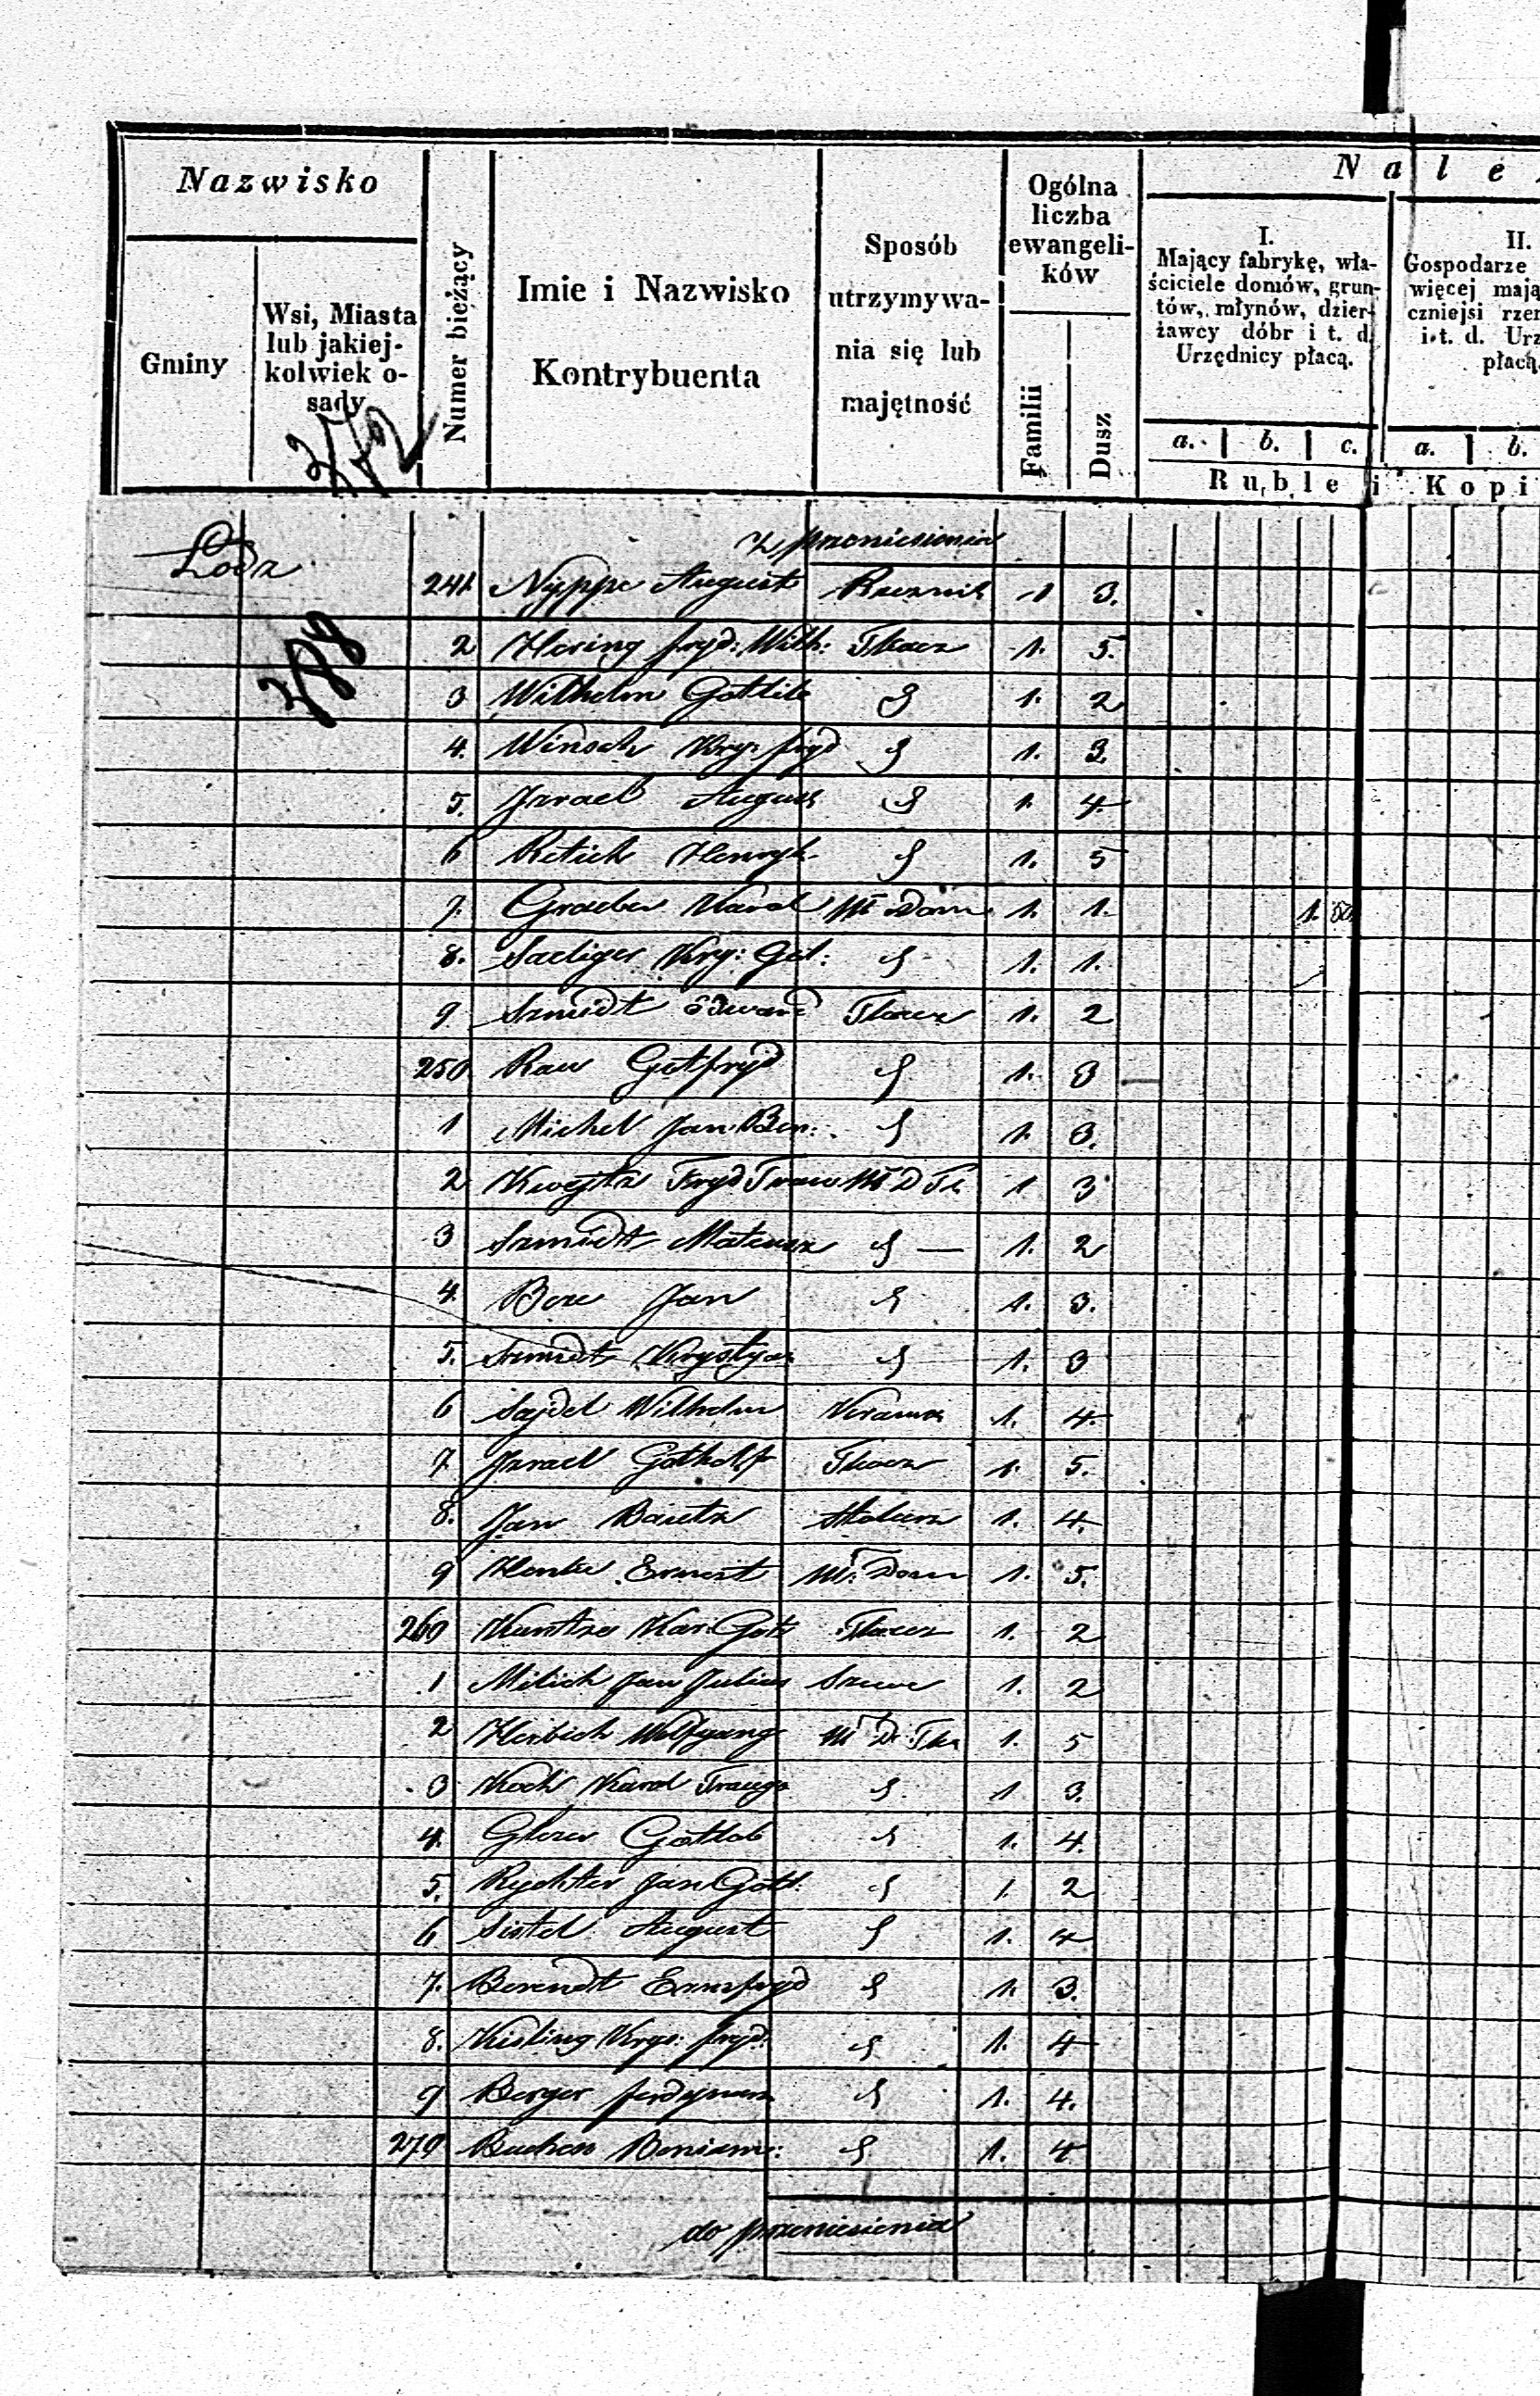 Nazwisko
Gminy
Wsi, Miasta
lub jakiej-
kolwiek o-
sady
Numer bieżący
Imie i Nazwisko
Kontrybuenta
Sposób
utrzymywa-
nia się lub
majętność
Ogólna
liczba
ewangeli-
ków
Familii
Dusz
N a l e
I.
Mający fabrykę, wła-
ściciele domów, grun-
tów, młynów, dzier-
żawcy dóbr i t. d.
Urzędnicy płacą.
a. b. c.
II.
Gospodarze
więcej mają
czniejsi rze
i t. d. Urz
płacą
a. b.
Ruble i Kopi
Lodz
z przeniesienia
241 Nyppe August 1 3.
2 Hering fryd: Wilh: Tkacz 1. 5.
3 Wilhelm Gotlib 1. 2
4. Winsch Krys fryd 1. 3.
5. Izrael August 1. 4
6 Retich Henryk 1. 5
7. Graeber Karol Wł Dom 1. 1. 1.
8. Saeliger Kry: Got: 1. 1.
9 Szmidt Edward Tkacz 1. 2
250 Rau Gotfryd 1. 3
1 Michel Jan Ben: 1. 3.
2 Fryd Trau Wł D Tk 1 3
3 Szmidt Mateusz 1. 2
4. Jan 1. 3.
5. Szmidt Krystyan 1. 3
6 Sajdel Wilhelm 1. 4
7. Izrael Gothelf Tkacz 1. 5.
8. Jan Stolarz 1. 4.
9 Ernest Wł. Dom 1. 5.
260 Kuntze Kar. Gott Tkacz 1. 2
1 Milich Jan Julius Szewc 1. 2
2 Herbich Wolfgang Wł D. Tka 1. 5
3 Koch Karol Traugo 1 3.
4. Gottlob 1. 4.
5. Rychter Jan Gott. 1. 2
6 Sistel August 1. 4
7. Berendt Ernsfryd 1. 3.
8. Kisling Krys: fryd: 1. 4
9 Berger ferdynan 1. 4.
270 Beniam: 1. 4
do przeniesienia